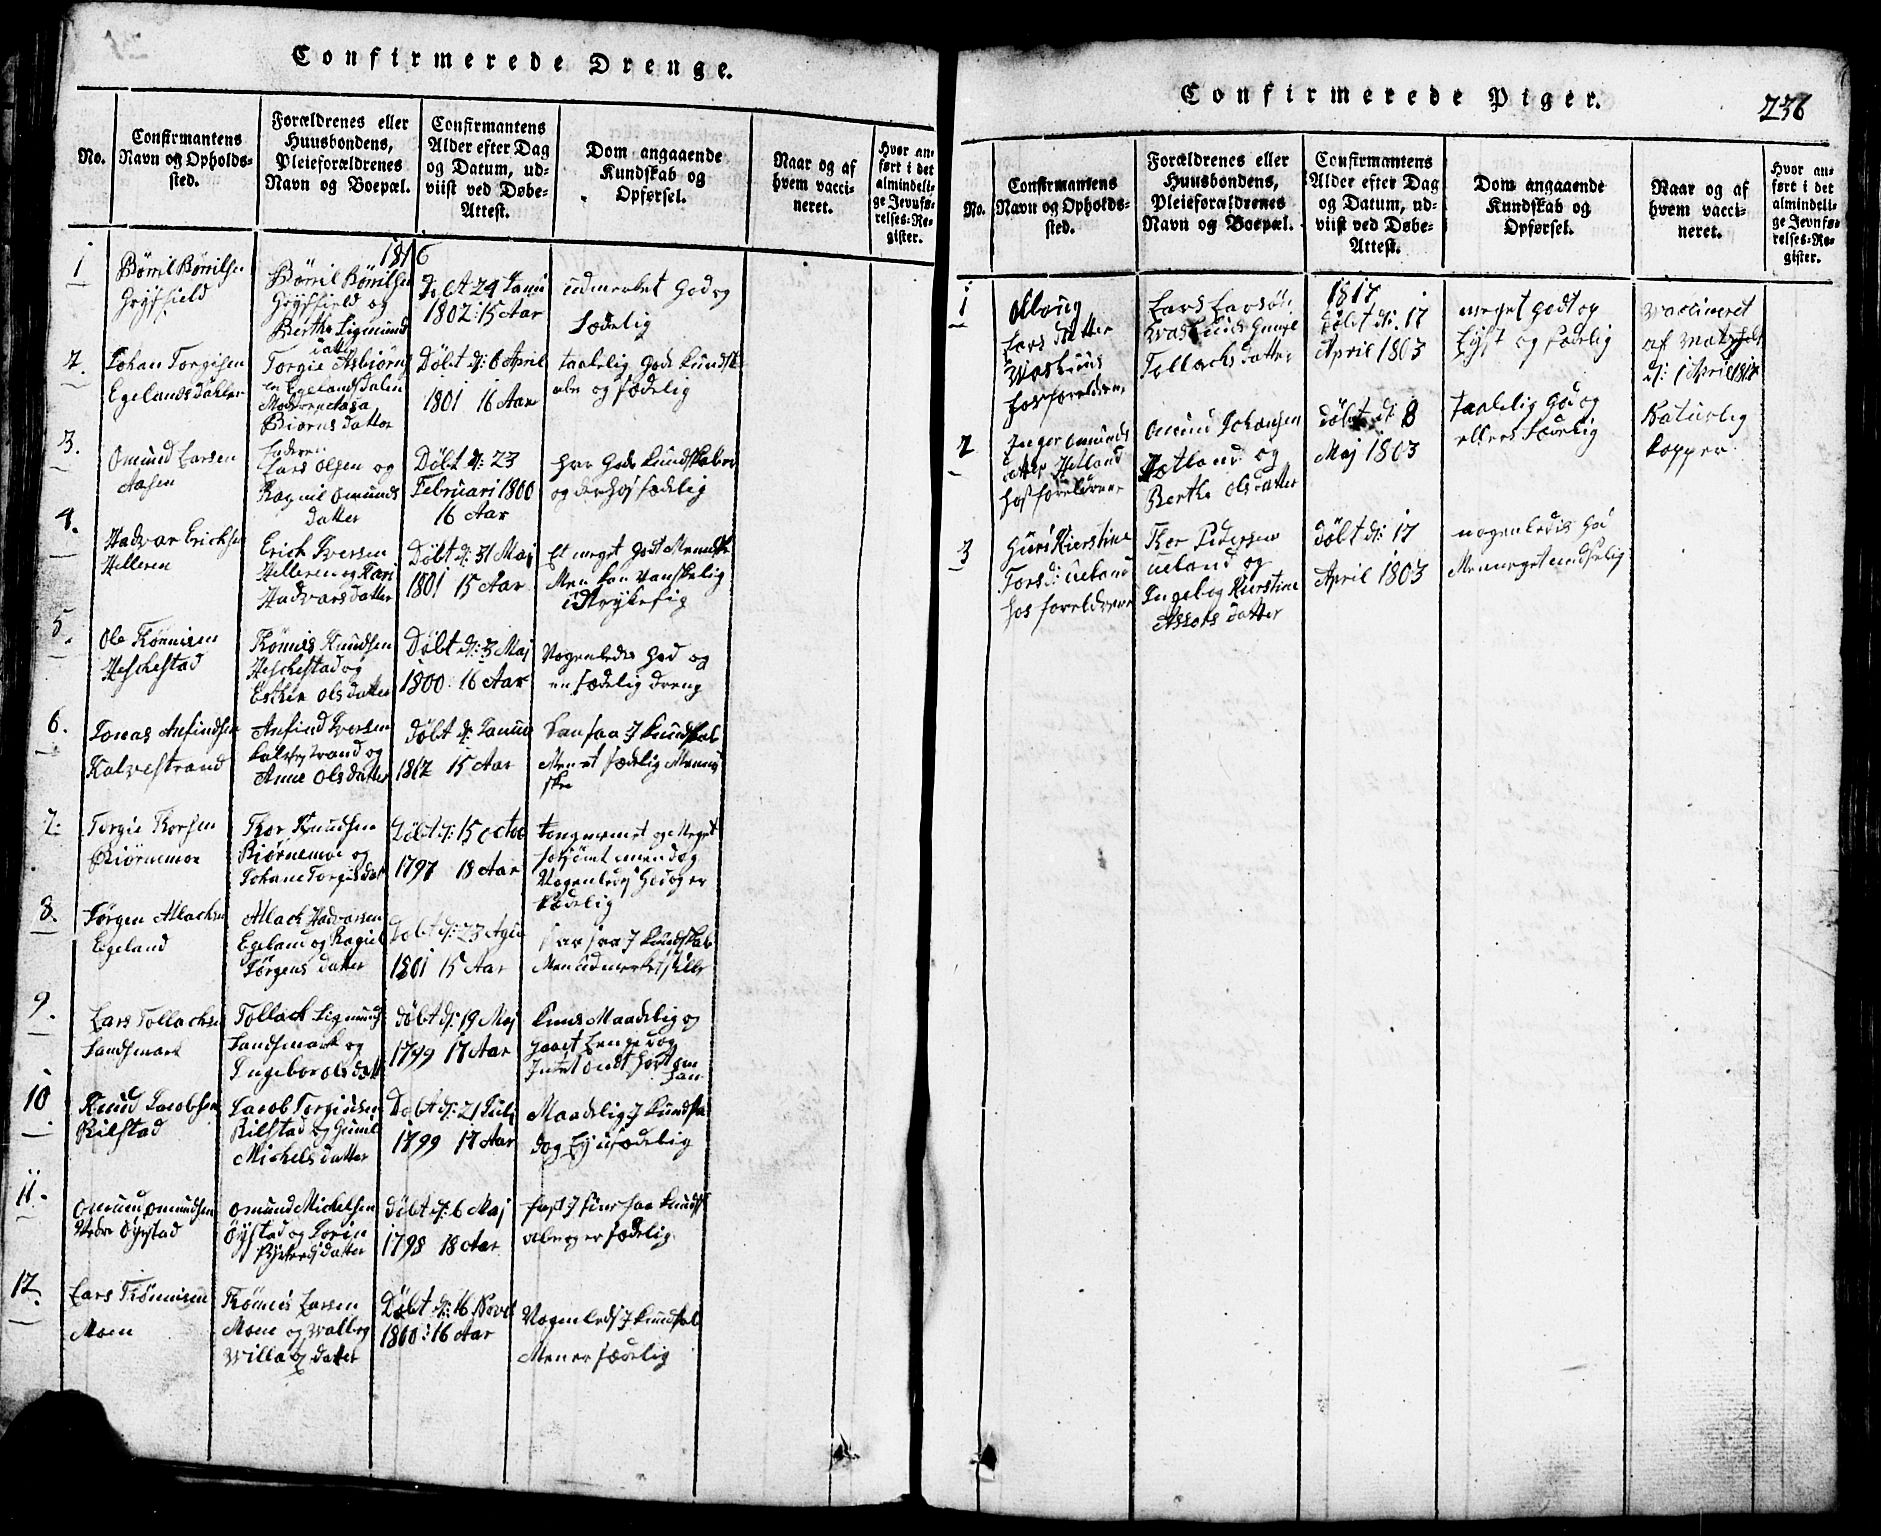 Confirmerede Drenge.
No.
Confirmantens
Navn og Opholds-
sted.
Forældrenes eller
Huusbondens,
Pleieforældrenes
Navn og Boepæl.
Confirmantens
Alder efter Dag
og Datum, ud-
viist ved Døbe-
Attest.
Dom angaaende
Kundskab og
Opførsel.
Naar og af
hvem vacci-
neret.
Hvor an-
ført i det
almindeli-
ge Jevnfø-
relses-Re-
gister.
1816
1
Børril Børrilsen
Gryfield
Børril Børrilsen
Gryfield og
Berthe Sigmund
datter
24 Janu
1802: 15 Aar
udmerket God og
Sædelig
2.
Johan Torgisen
Egelandsdahlen
Torgie Asbiørns
en Egelandsdalen
Moderen Aasa
Biørns datter
Døbt d: 6 April
1801 16 Aar
taalelig gode Kundsk
abe og sædelig
3.
Omund Larsen
Aasen
Faderen
Lars Olsen og
Ragnil Omunds
datter
Døbt d: 23
Februari 1800
16 Aar
har Gode Kundskaber
og derhos sædelig
4.
Hadvar Ericksen
Helleren
Erich Iversen
Helleren og Kari
Hadvarsdatter
Døbt d: 31 Maj
1801 15 Aar
Et meget godt Mennske
Men kan Vanskelig
udtrykke sig
5.
Ole Tønnisen
Heschestad
Tønnis Knudsen
Heschestad og
Esther Olsdatter
Døbt d: 3 Maj
1800: 16 Aar
Nogenledes God og
en sædelig dreng
6.
Jonas Anfindsen
Kalvestrand
Anfind Iversen
Kalvestrand og
Anne Olsdatter
Døbt d: Januu
1802 15 Aar
kundskab
Men et sædelig Menni
ske
7.
Torgie Thorsen
Biørnemoe
Thor Knudsen
Biørnemoe og
Johane Torgisdat
Døbt d: 15 Octob
1797 18 Aar
tongnemet og Meget
forsømt men dog
Nogenledes God og er
sædelig
8.
Jørgen Atlachsen
Egeland
Atlack Hadvorsen
Egeland og Ragnil
Jørgens datter
Døbt d: 23
1801 15 Aar
Kundskab
Men udmerket stille
9.
Lars Tollachsen
Sandsmark
Tollack Sigmunds
Sandsmark og
Ingebor Olsdatt
døbt d: 19 Maj
1799 17 Aar
Kuns Maadelig og
gaaet Lenge dog
Intet ondt hørt om
ham
10
Knud Jacobsen
Rilstad
Jacob Torgiusen
Rilstad og Gunil
Michelsdatter
Døbt d: 21 Juli
1799 17 Aar
Maadelig J Kundska
dog Ej usædelig
11.
Omund Omundsen
Nedre Øystad
Omund Michelsen
Øystad og Torin
datter
døbt d: 6 Maj
1798 18 Aar
fast J sine faa Kundsk
aber og er sædelig
12.
Lars Tønnisen
Moen
Tønnes Larsen
Moene og Valborg
Villads datter
Døbt d: 16 Novb
1800: 16 Aar
Nogenleds J Kundskab
Men er sædelig
Confirmerede Piger.
236
No.
Confirmantens
Navn og Opholds-
sted.
Forældrenes eller
Huusbondens,
Pleieforældrenes
Navn og Boepæl.
Confirmantens
Alder efter Dag
og Datum, ud-
viist ved Døbe-
Attest.
Dom angaaende
Kundskab og
Opførsel.
Naar og af
hvem vacci-
neret.
Hvor an-
ført i det
almindeli-
ge Jevnfø-
relses-Re-
gister.
1817
1
Lars datter
hos foreldrene
Lars Larsøn
Tollachs datter
døbt d: 17
April 1803
meget godt op
Lyst og sædelig
Vaccineret
af
d: 1 April 1817
2
Inger Omunds
datter Hetland
hos foreldrene
Omund Johansen
Hetland og
Berthe Olsdatter
døbt d: 8
Maj 1803
Taalelig God og
ellers sædelig
Naturlig
kopper
3
Guri Kierstine
Torsd: Ueland
hos foreldrene
Thor Pedersen
Ueland og
Ingebog Kierstine
Assers datter
døbt d: 17
April 1803
nogenledis God
Men meget undselig